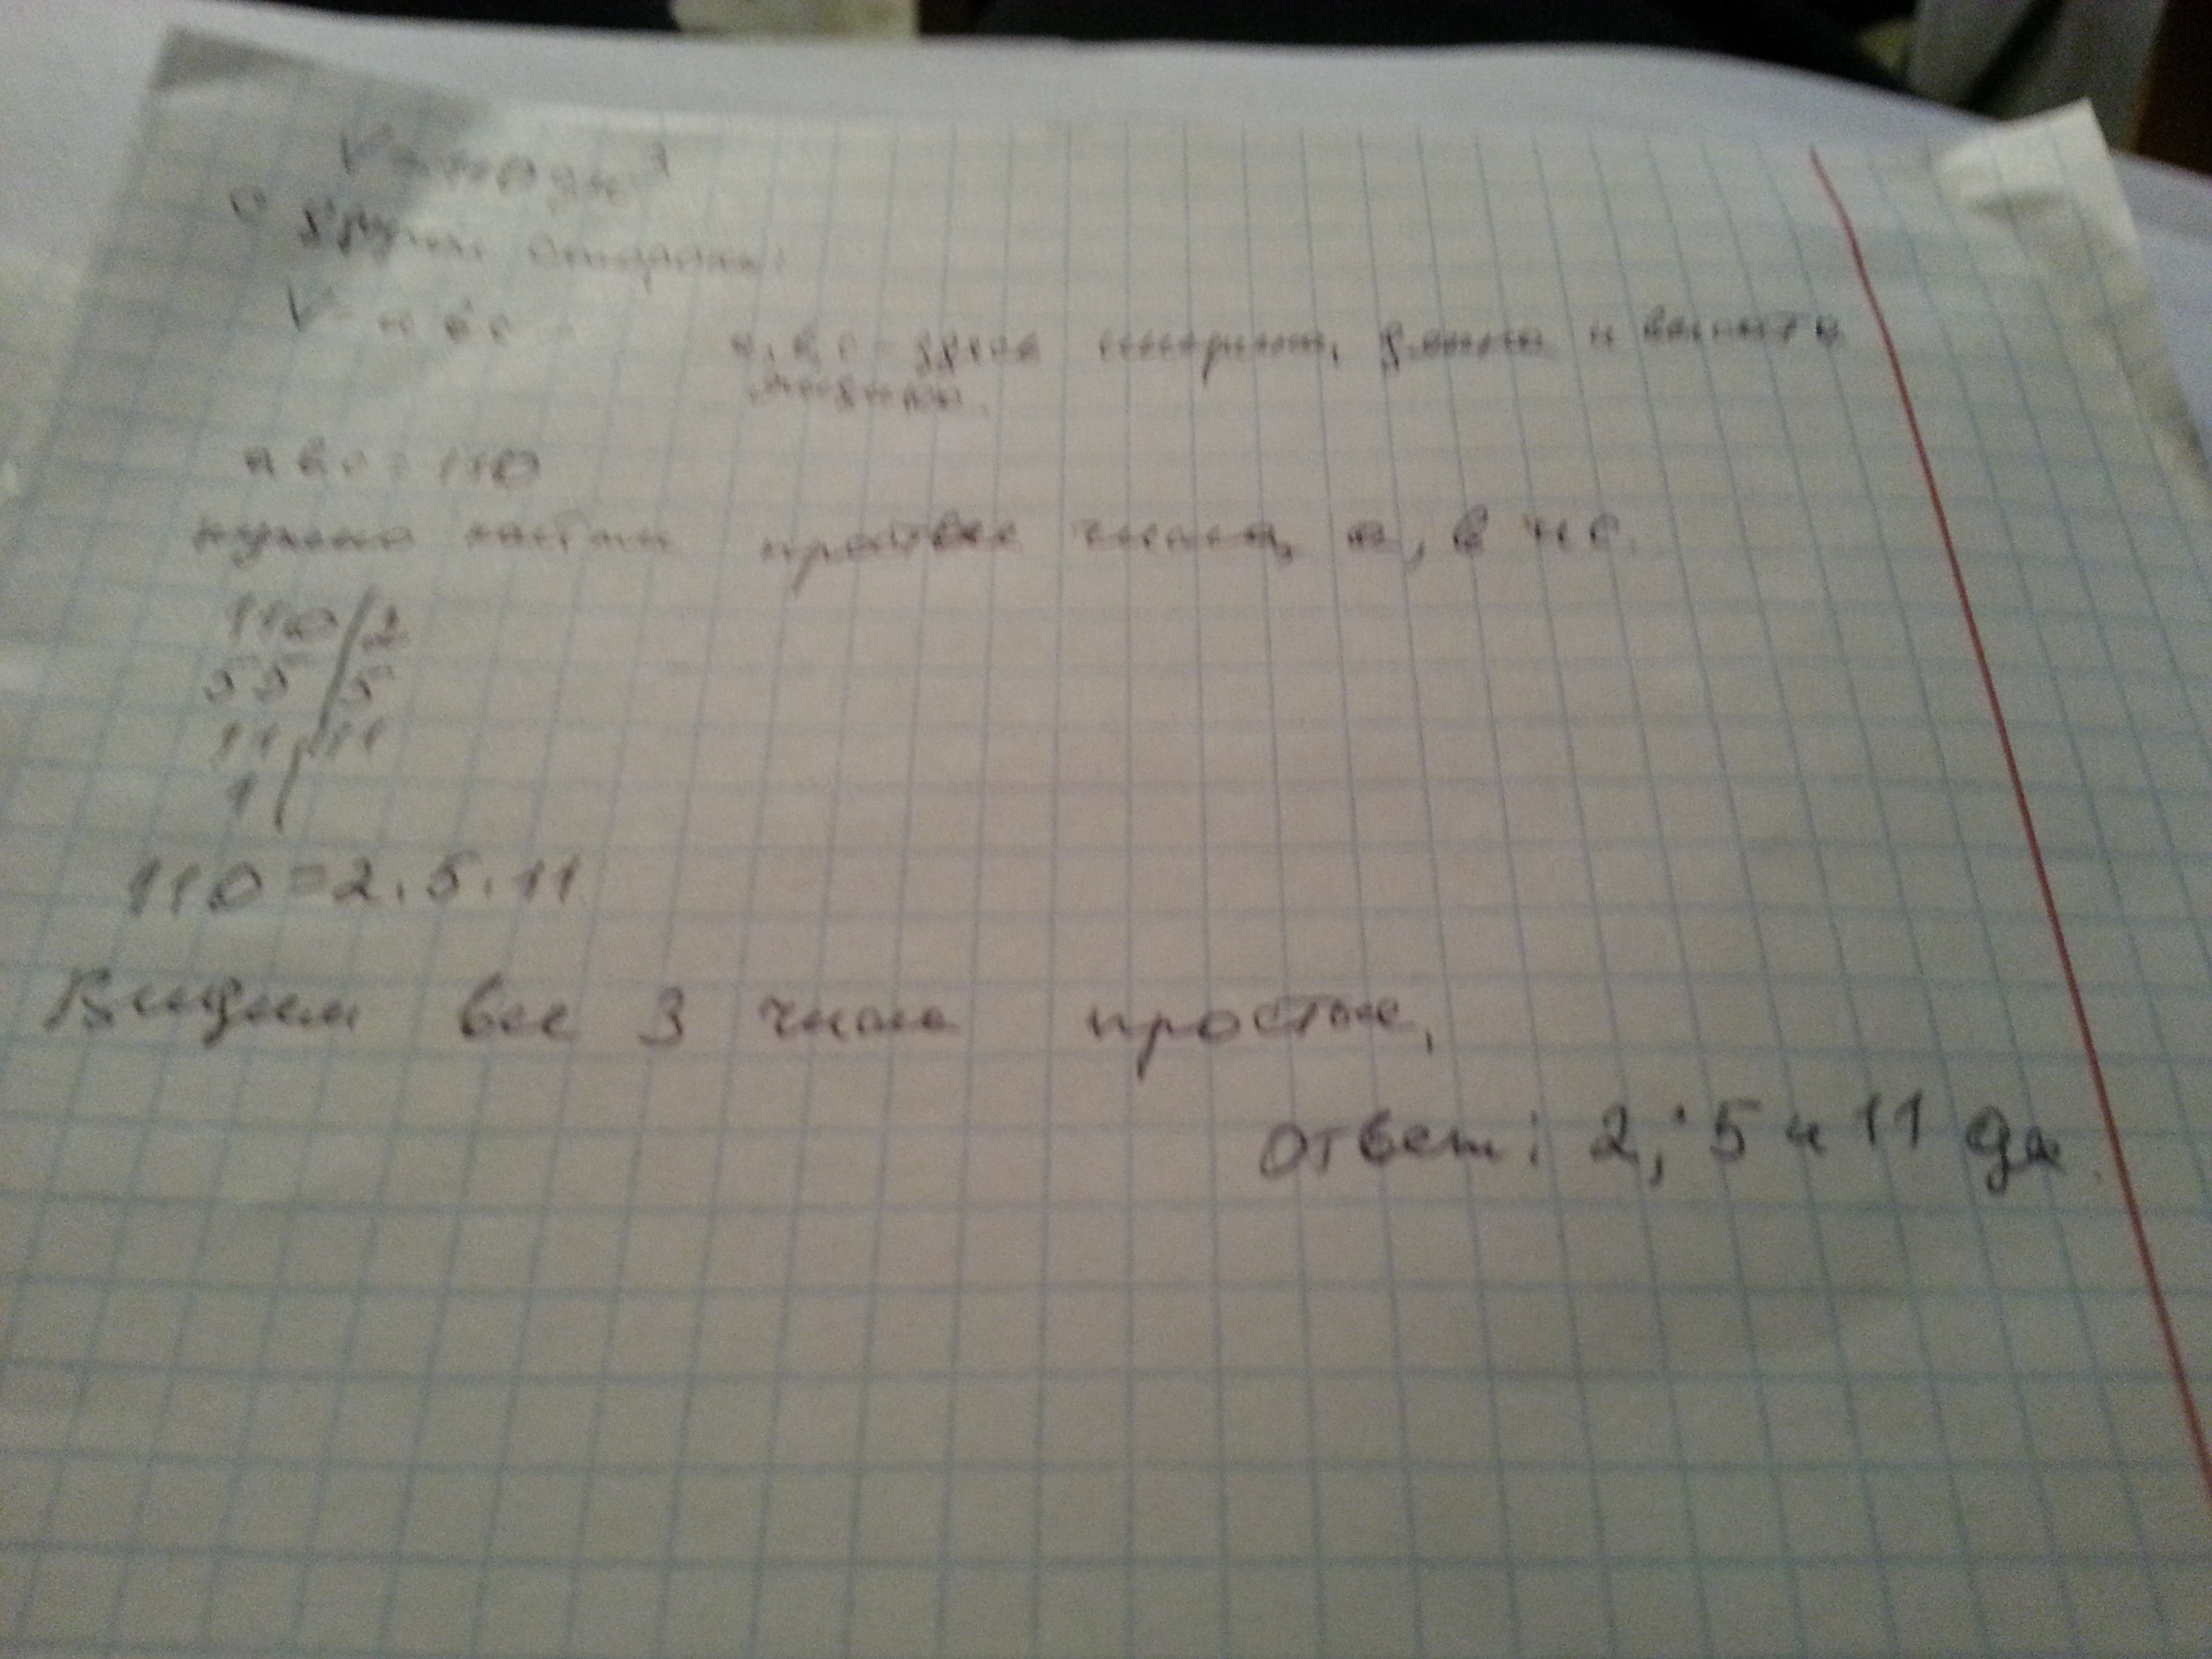 V = 110 дм³
с другой стороны:
V = a b c
a, b, c - здесь ширина, длина и высота
abc = 110
нужно найти простые числа a, b и c.
110 2
55 5
11 11
1
110 = 2 · 5 · 11
Видим все 3 числа простые,
Ответ: 2; 5 и 11 дм.